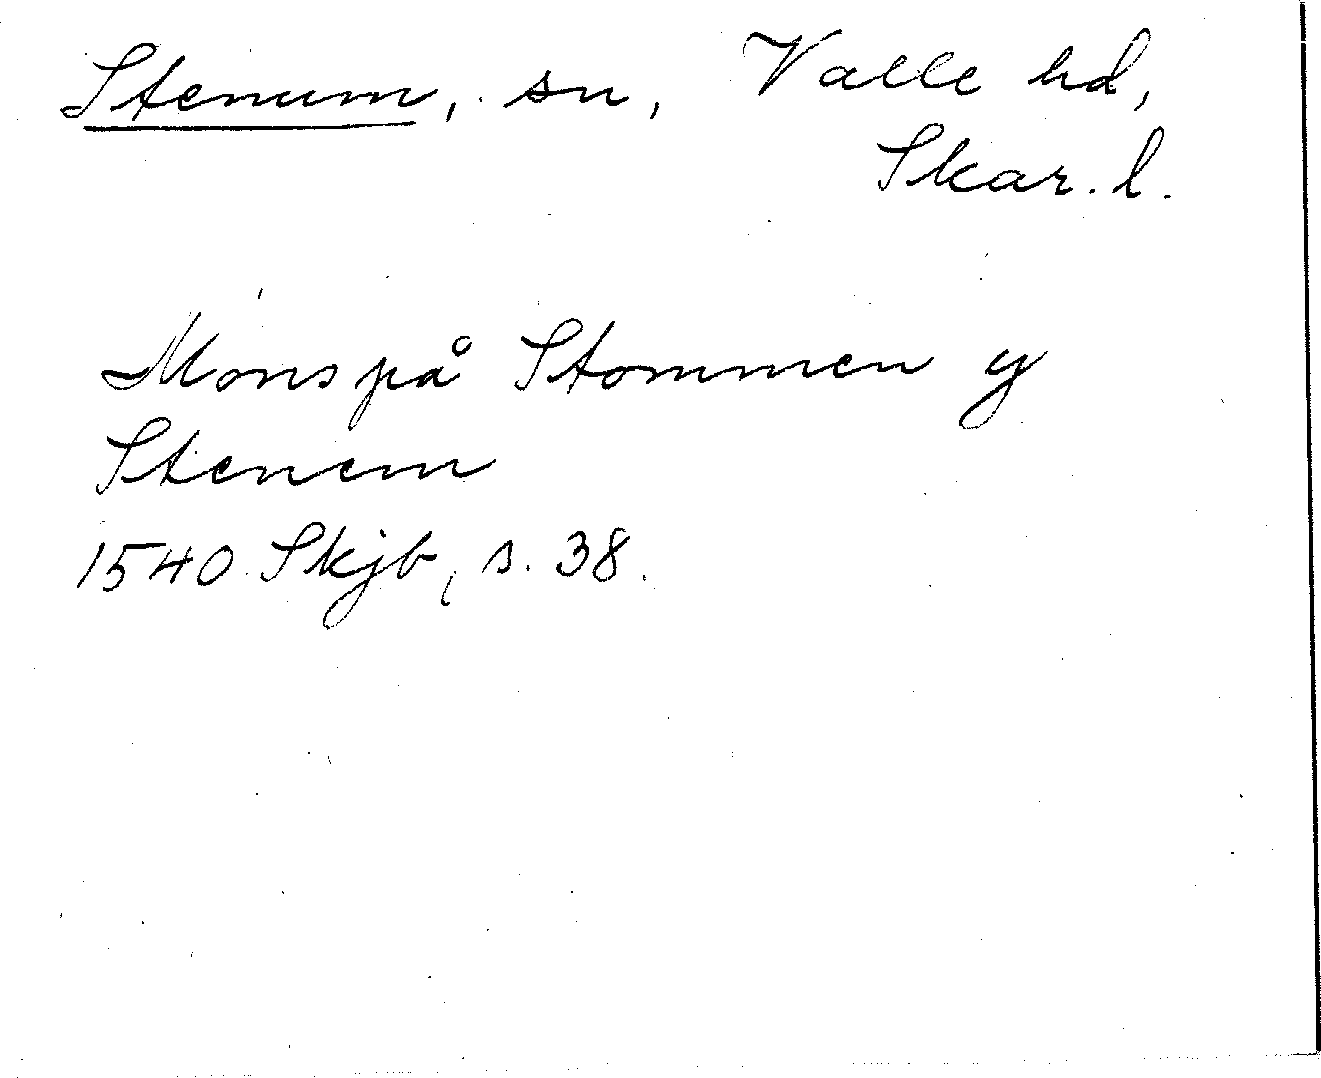 Stenum, sn, Valle hd,
Skar. l.
Mons på Stommen y
Stenem
1540 Skjb, s. 38.